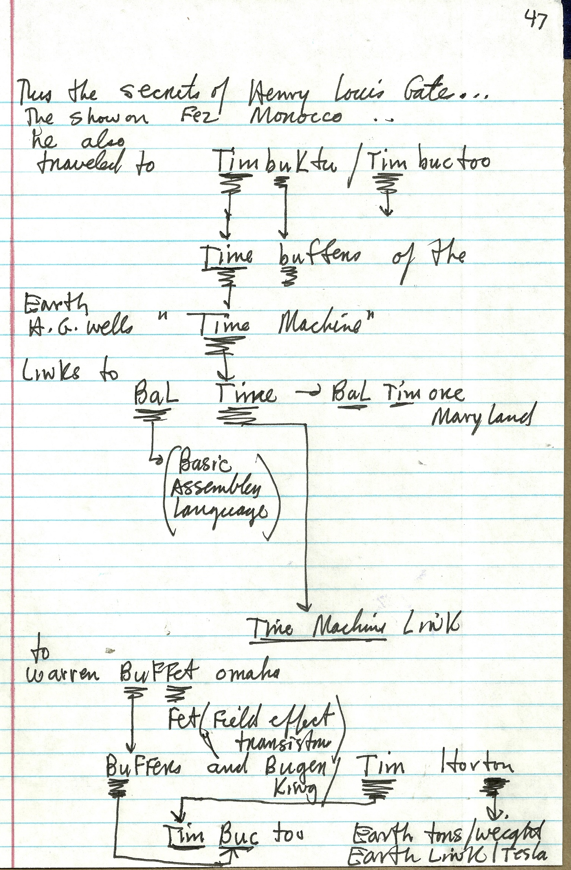 47
Thus the secrets of Henry Louis Gate...
The show on Fez Morocco ..
he also
traveled to Timbuktu / Timbuctoo
Time buffers of the
Earth
H.G. Wells " Time Machine"
Links to
BaL Time → BaL Tim ore
Maryland
(Basic
Assembley
Language)
Time Machine Link
to
Warren BuFFet omaha
Fet (Field effect
transistor)
BuFFers and Buger Tim Horton
King
Tim Buc too Earth tons/weight
Earth Link / Tesla